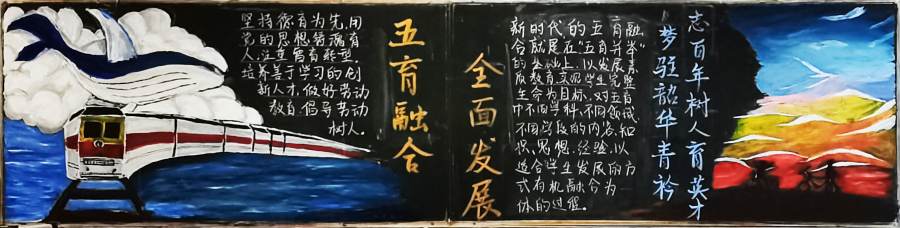 坚持德育为先,用
党的思想铸魂育
人,注重育有新型.
培养善于学习的创
新人才.做好劳动
教育.倡导劳动
树人.
五育融合
全面发展
新时代的五育融
合就是在“五育并举”
的基础上.以发展素
质教育,实现学生完整
生命为目标.对五育
中不同学科.不同领域
不同学段的内容.知
识.思想.经验.以
适合学生发展的方
式有机融合为一
体的过程.
志百年树人育英才
梦驻韶华青衿